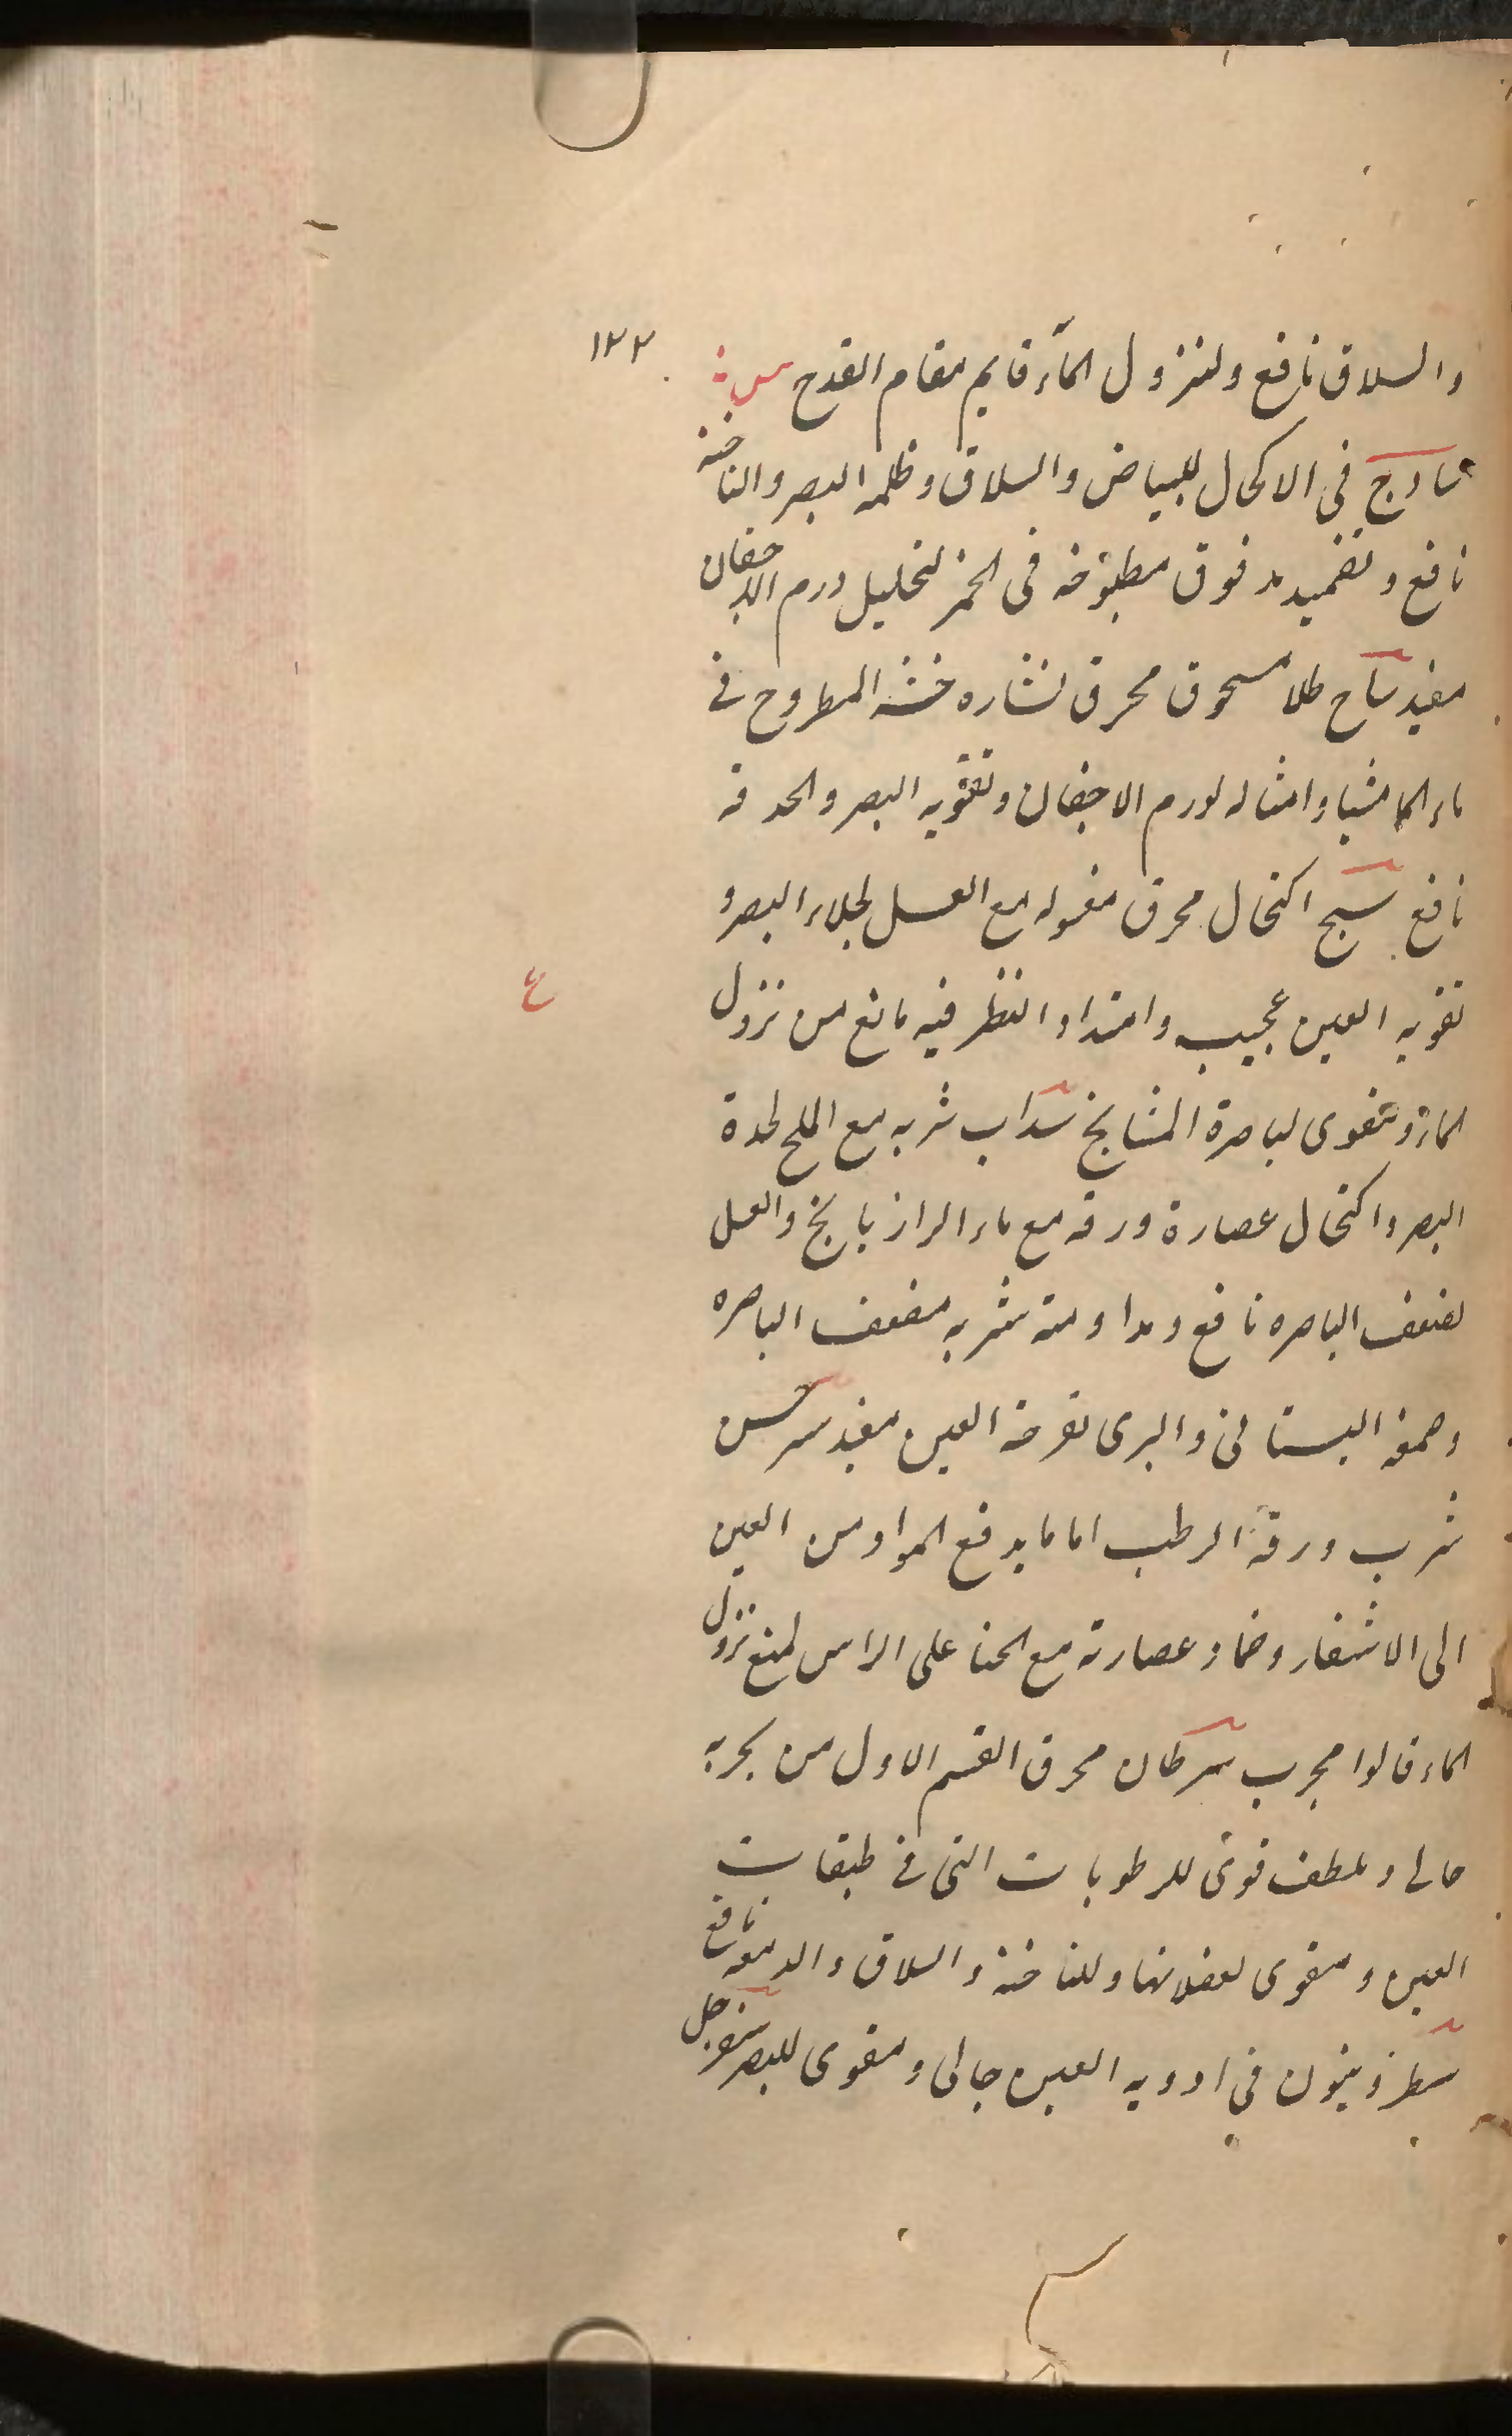 ١٢٢
والسلاق نافع ولنزول المآء قايم مقام القدح س:
سادج في الاكحال للبياض والسلاق وظلمه البصر والناخنه
نافع وتضميد مدقوق مطبوخه في الخمر لتحليل ورم الاجفان
مفيد ساج طلا مسحوق محرق نشاره خشبه المطروح في
ماء الماميثيا وامثاله لورم الاجفان وتقويه البصر والحدقه
نافع سبج اكتحال محرق مغسوله مع العسل لجلاء البصر و
تقويه العين عجيب وامتداد النظر فيه مانع من نزول
ع
الماء ومقوى لباصرة المشايخ سداب شربه مع الملح لحدة
البصر واكتحال عصارة ورقه مع ماء الرازيانج والعسل
لضعف الباصره نافع ومداومة شربه مضعف الباصره
وصمغ البستاني والبرى لقرحة العين مفيد سرخس
شرب ورقه الرطب اماما يدفع المواد من العين
الى الاشفار وضماد عصارته مع الحنا على الراس لمنع نزول
الماء قالوا مجرب سرطان محرق القسم الاول من بحريه
جالى وملطف قوى للرطوبات التى في طبقات
العين ومقوى لعضلاتها وللناخنه والسلاق والدمعه نافع
سطرونيون في ادويه العين جالى ومقوى للبصر سفرجل